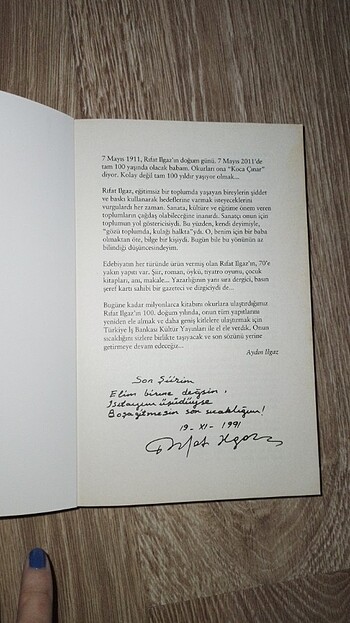 7 Mayıs 1911, Rıfat Ilgaz'ın doğum günü. 7 Mayıs 2011'de
tam 100 yaşında olacak babam. Okurları ona "Koca Çınar"
diyor. Kolay değil tam 100 yıldır yaşıyor olmak...
Rıfat Ilgaz, eğitimsiz bir toplumda yaşayan bireylerin şiddet
ve baskı kullanarak hedeflerine varmak isteyeceklerini
vurgulardı her zaman. Sanata, kültüre ve eğitime önem veren
toplumların çağdaş olabileceğine inanırdı. Sanatçı onun için
toplumun yol göstericisiydi. Bu yüzden, kendi deyimiyle,
"gözü toplumda, kulağı halkta"ydı. O, benim için bir baba
olmaktan öte, bilge bir kişiydi. Bugün bile bu yönümün az
bilindiği düşüncesindeyim.
Edebiyatın her türünde ürün vermiş olan Rıfat Ilgaz'ın, 70'e
yakın yapıtı var. Şiir, roman, öykü, tiyatro oyunu, çocuk
kitapları, anı, makale... Yazarlığının yanı sıra dergici, basın
şeref kartı sahibi bir gazeteci ve dizgiciydi de...
Bugüne kadar milyonlarca kitabını okurlara ulaştırdığımız
Rıfat Ilgaz'ın 100. doğum yılında, onun tüm yapıtlarını
yeniden ele almak ve daha geniş kitlelere ulaştırmak için
Türkiye İş Bankası Kültür Yayınları ile el ele verdik. Onun
sıcaklığını sizlere birlikte taşıyacak ve son sözünü yerine
getirmeye devam edeceğiz...
Aydın Ilgaz
Son Şiirim
Elim birine değsin,
Isıtayım üşüdüyse
Boşa gitmesin son sıcaklığım!
19-XI-1991
Rıfat Ilgaz